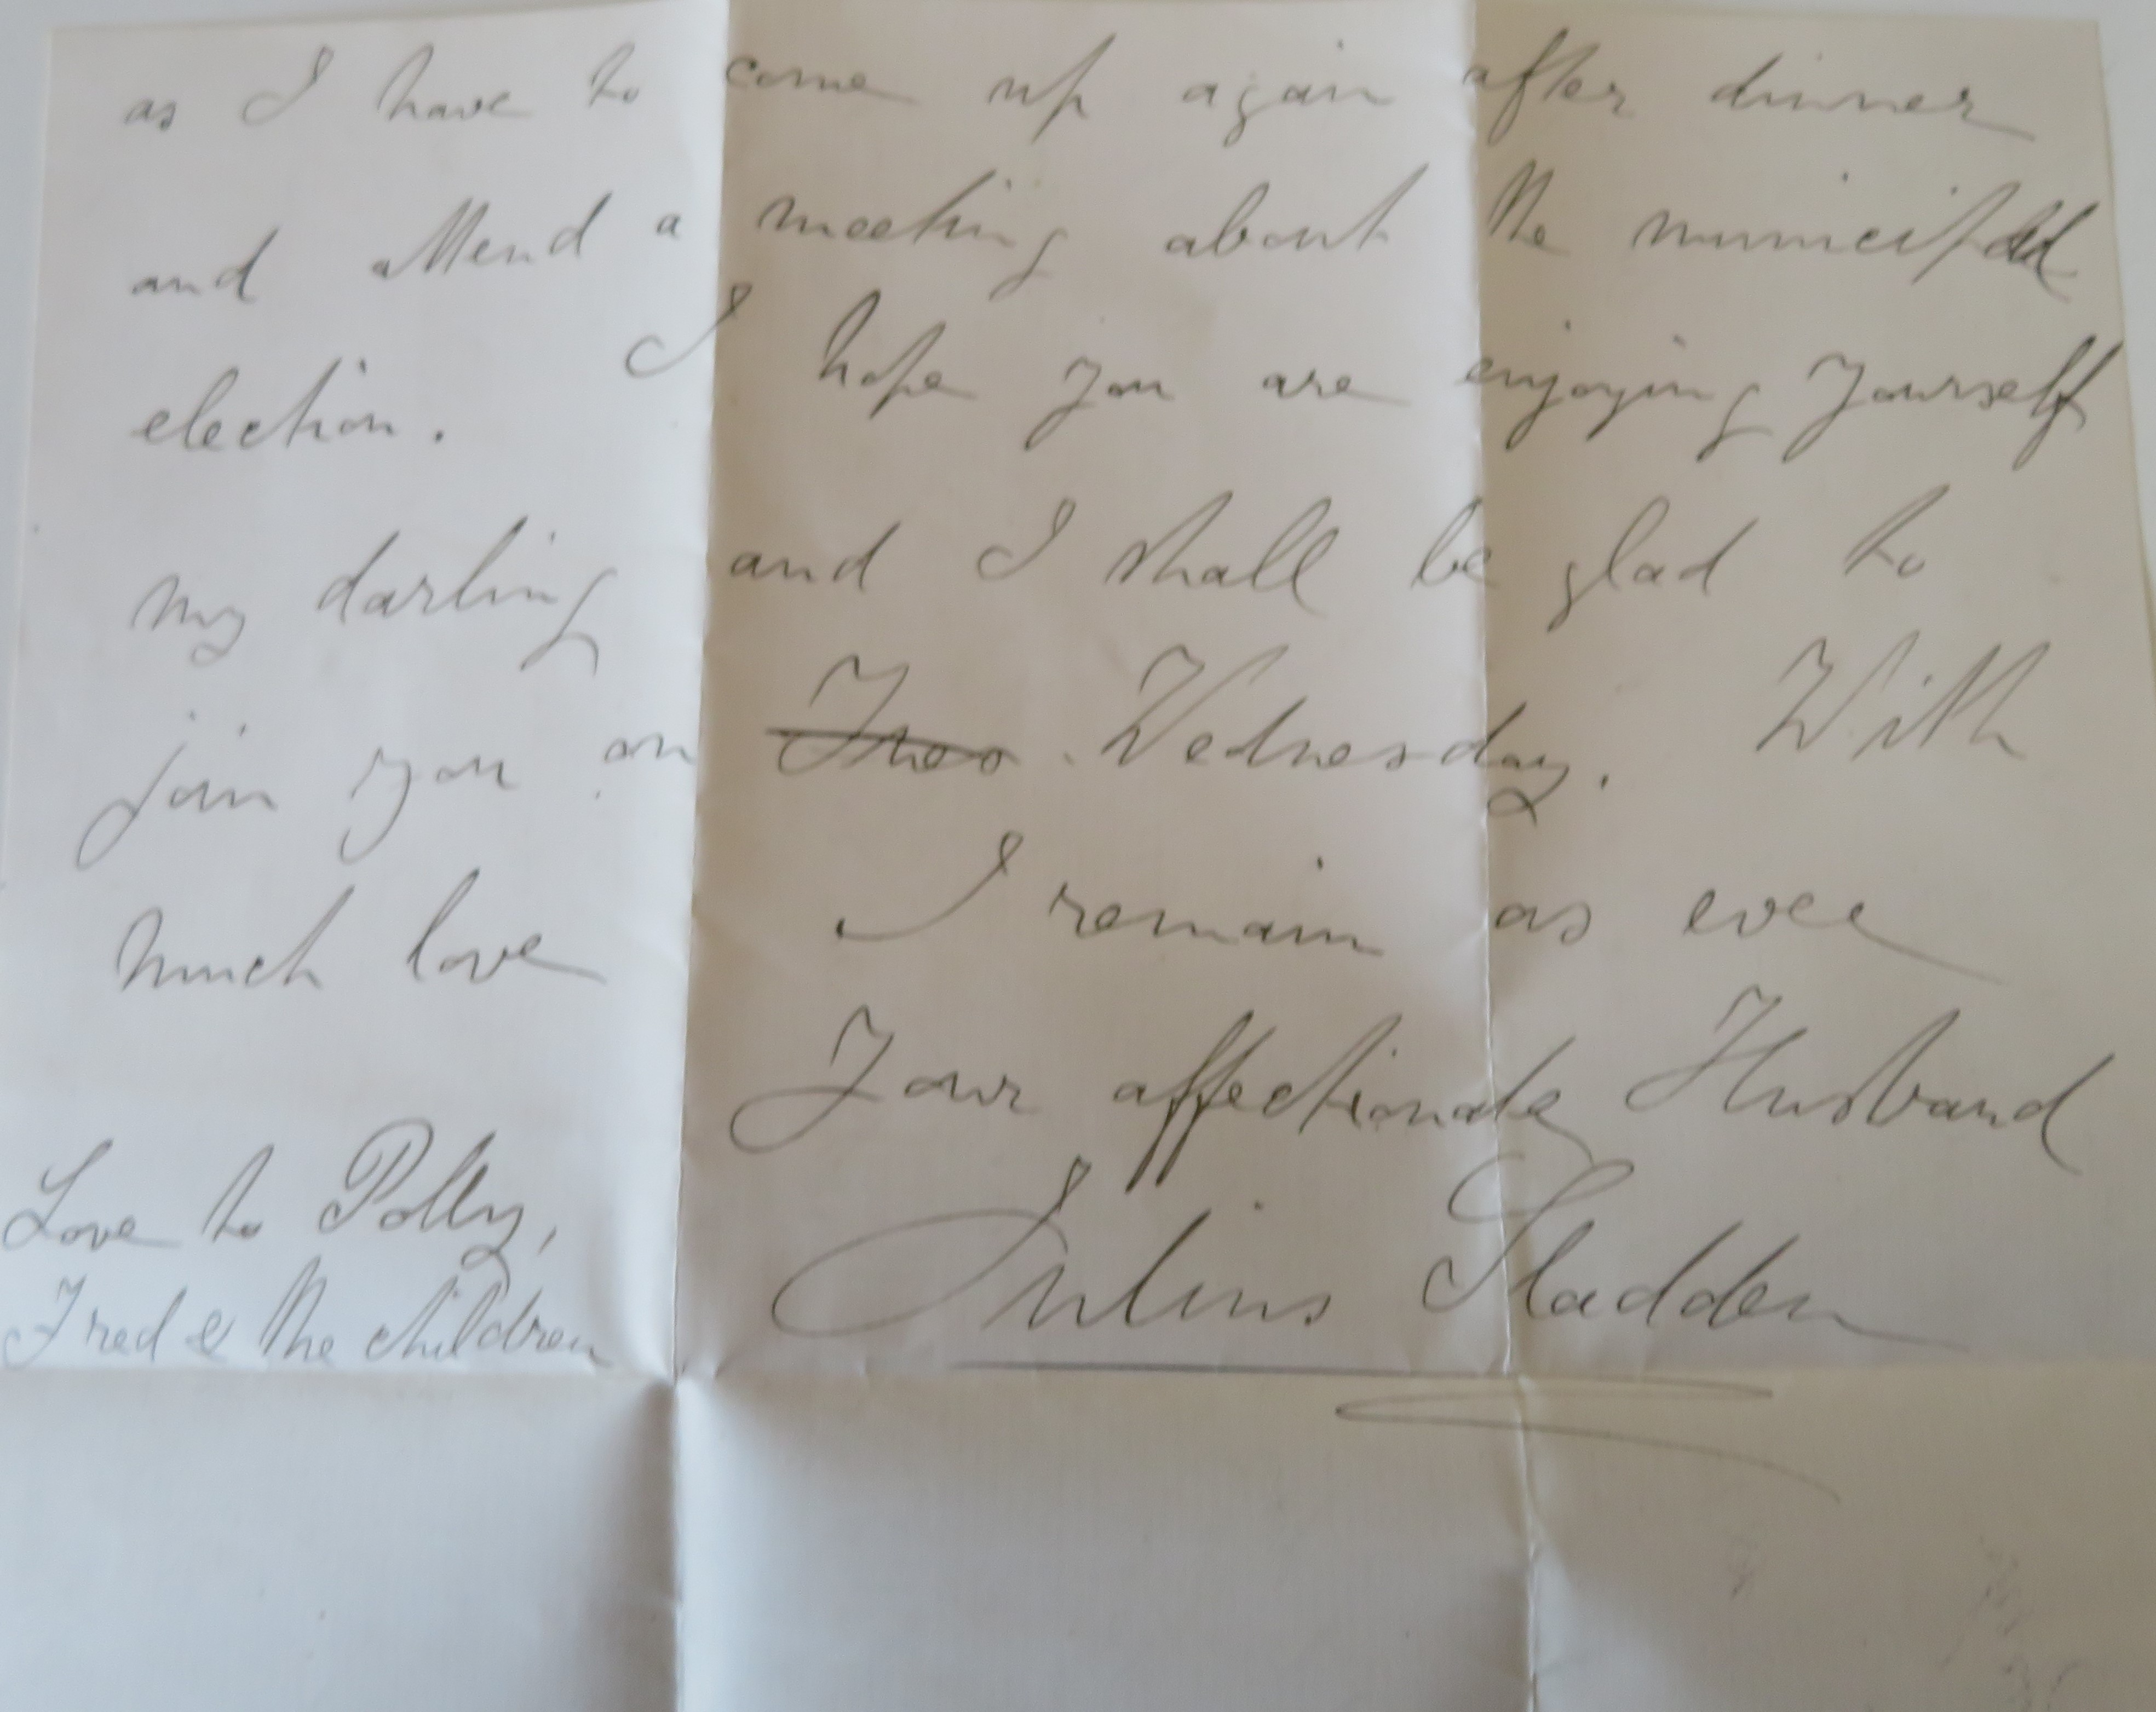 as I have to come up again after dinner
and attend a meeting about the municipal
election. I hope you are enjoying yourself
my darling and I shall be glad to
join you on Wednesday. With
much love I remain as ever
Your affectionate Husband
Julius Sladden
Love to Polly,
Fred & the children